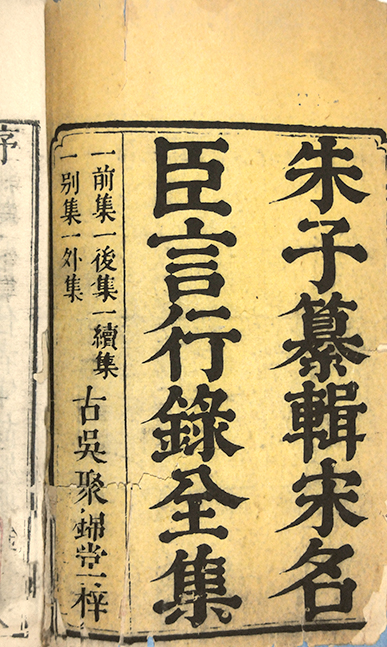 朱子纂輯宋名
臣言行錄全集
一前集一後集一續集
一别集一外集
古吳聚錦堂梓
序